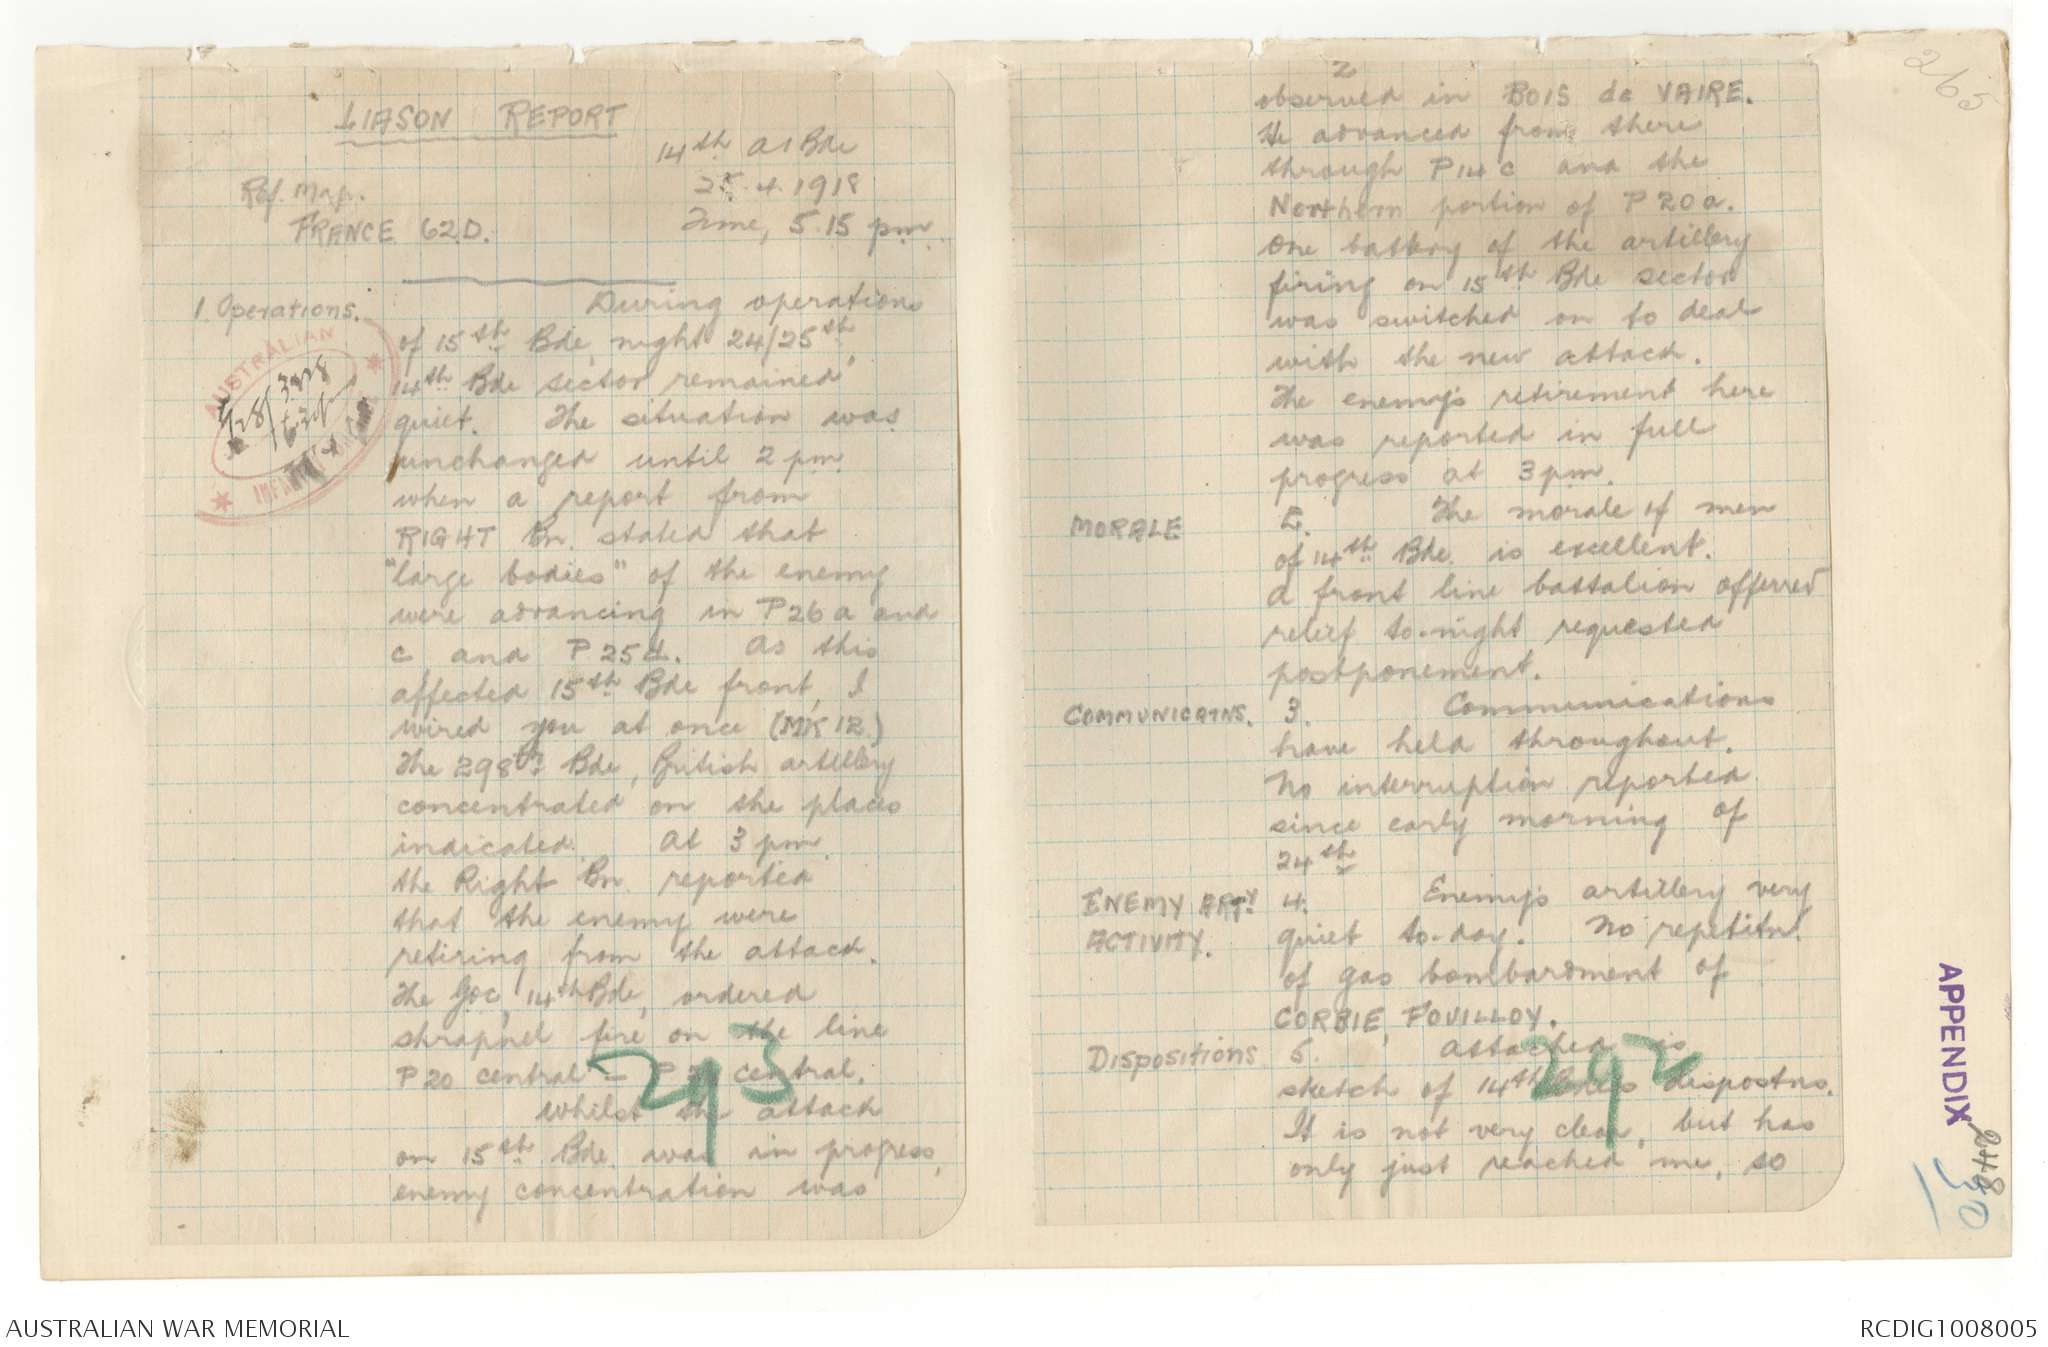 LIASON REPORT
14th AI Bde
25.4.1918
Time, 5.15 pm.
Ref. Map.
FRANCE 62D.
1. Operations.
During operations
of 15th Bde, night 24/25th,
14th Bde sector remained
quiet. The situation was
unchanged until 2 pm.
when a report from
RIGHT Bn. stated that
"large bodies" of the enemy
were advancing in P26a and
c and P25d. As this
affected 15th Bde front, I
wired you at once (MK12.)
The 298th Bde, British artillery
concentrated on the places
indicated. At 3 pm.
the Right Bn. reported
that the enemy were
retiring from the attack.
The GOC, 14th Bde, ordered
shrapnel fire on the line
P20 central - P central.
Whilst the attack
on 15th Bde. was in progress,
enemy concentration was
AUSTRALIAN
INFANTRY
293
2
observed in BOIS de VAIRE.
He advanced from there
through P14c and the
Northern portion of P20a.
One battery of the artillery
firing on 15th Bde sector
was switched on to deal
with the new attack.
The enemy's retirement here
was reported in full
progress at 3pm.
MORALE
2. The morale if men
of 14th Bde. is excellent.
A front line battalion offerred
relief to-night requested
postponement.
COMMUNICATNS.
3. Communications
have held throughout.
No interruption reported
since early morning of
24th
ENEMY ARTY.
ACTIVITY.
4. Enemy's artillery very
quiet to-day. No repetitn.
of gas bombardment of
CORBIE, FOUILLOY.
Dispositions
5. Attached is
sketch of 14th Bde's dispostns.
It is not very clear, but has
only just reached me, so
292
265
APPENDIX
30
AUSTRALIAN WAR MEMORIAL
RCDIG1008005